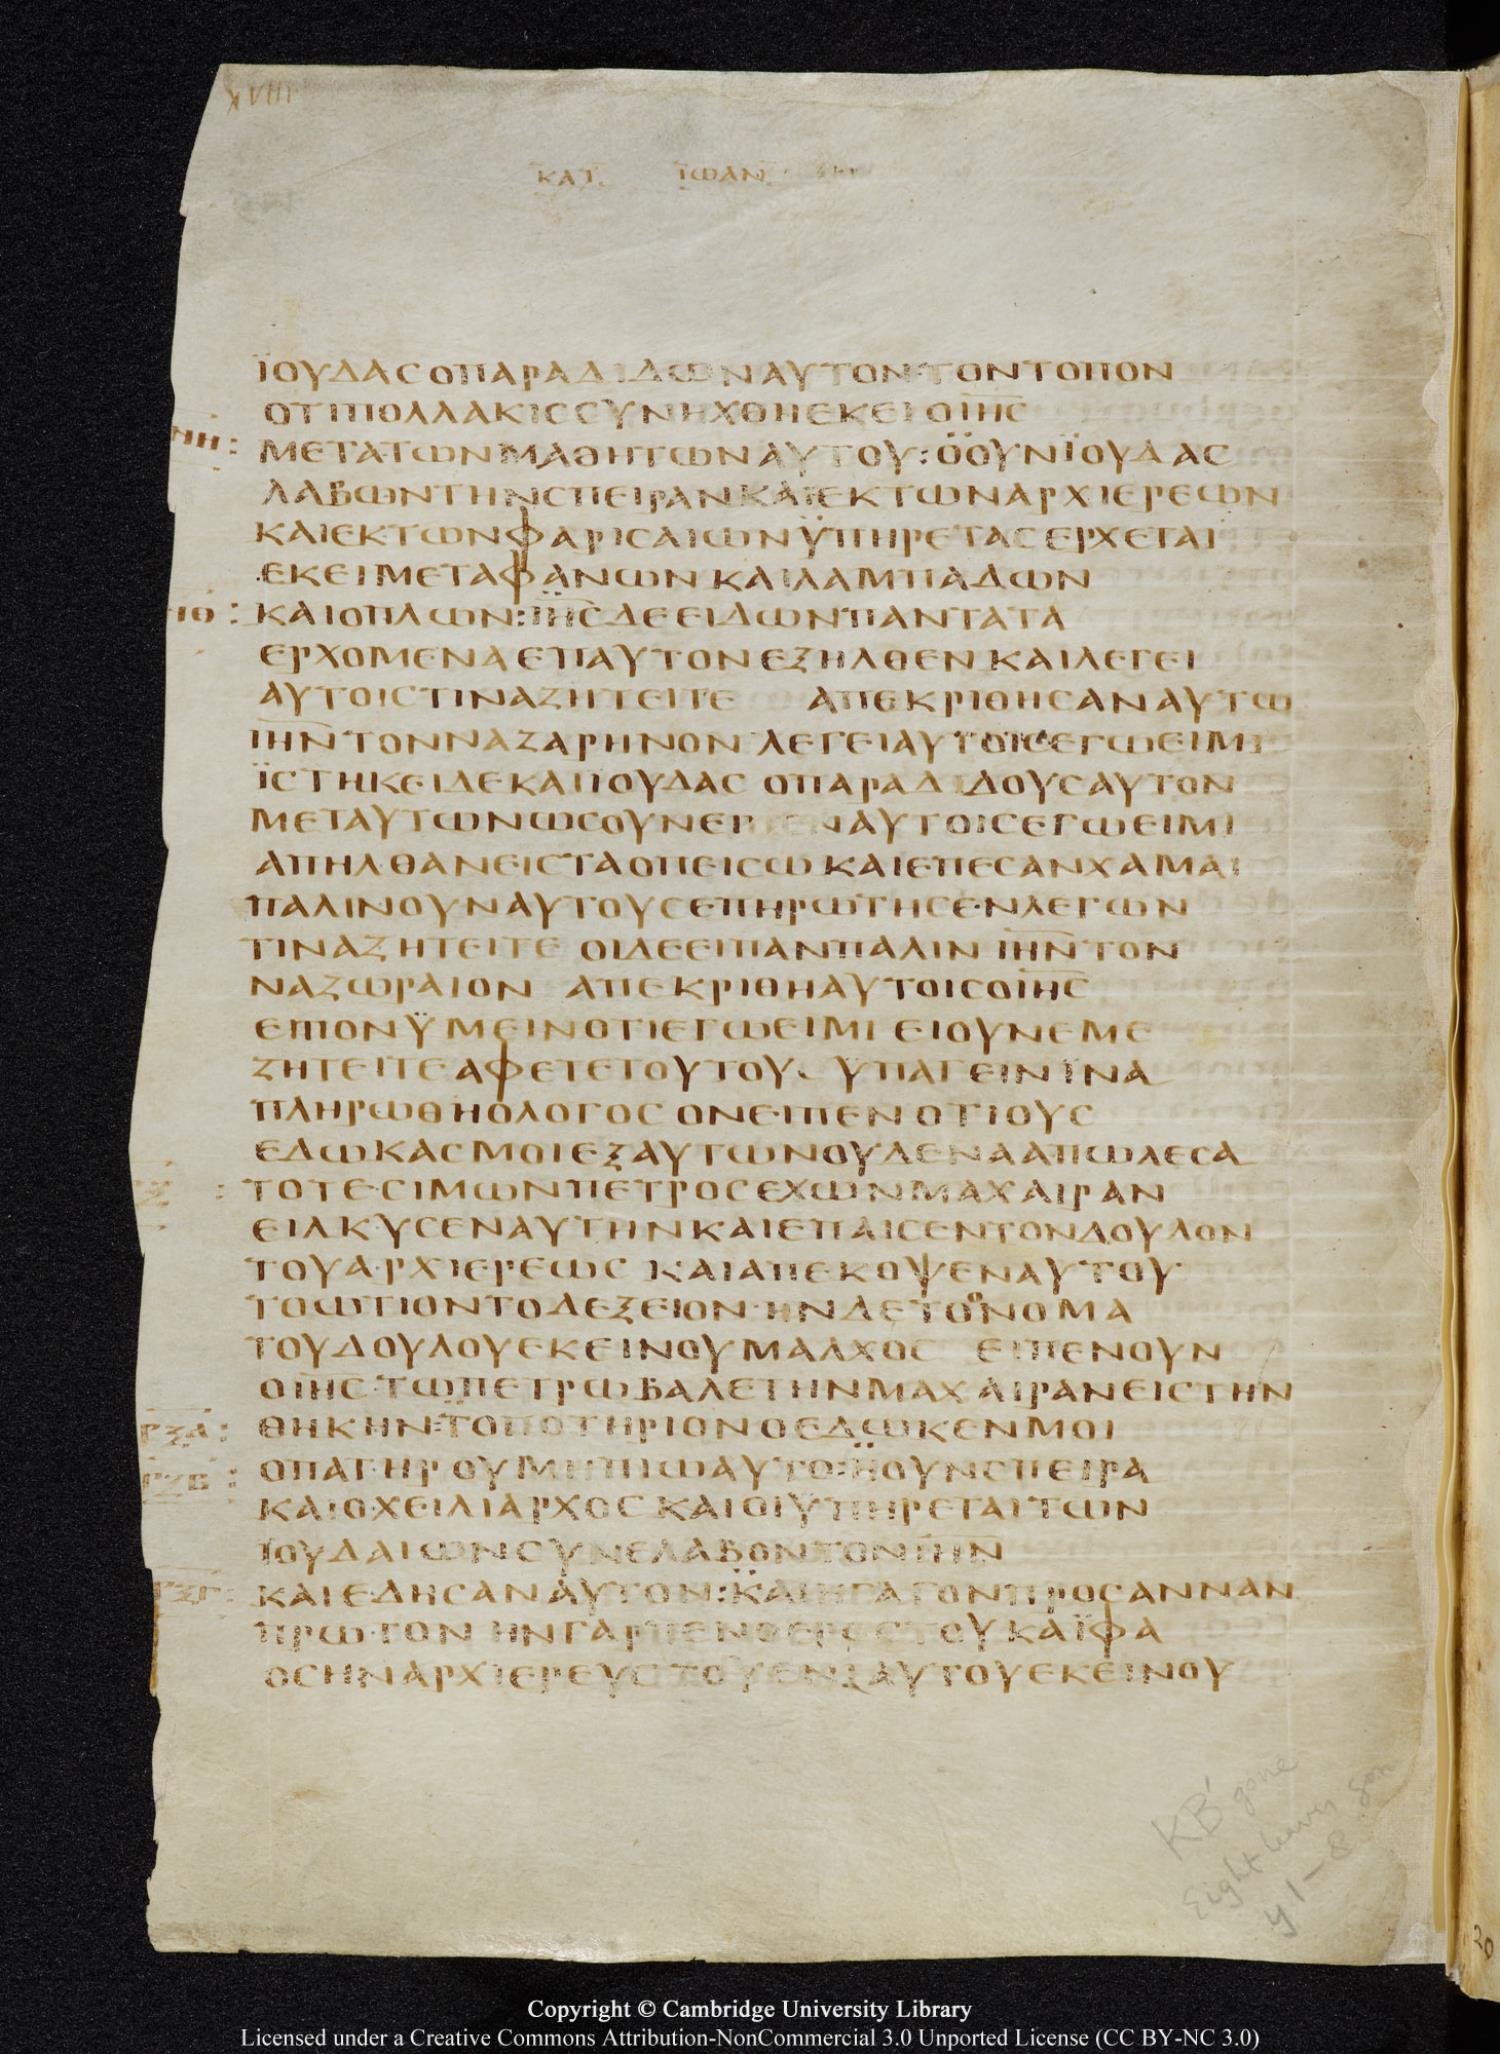 XVIII
ΚΑΤ ΙΩΑΝ
ΪΟΥΔΑC ΟΠΑΡΑΔΙΔΩΝΑΥΤΟΝ·ΤΟΝΤΟΠΟΝ
ΟΤΙΠΟΛΛΑΚΙCCΥΝΗΧΘΗΕΚΕΙΟΙΗC
ΝΗ: ΜΕΤΑΤΩΝΜΑΘΗΤΩΝΑΥΤΟΥ:ΟΟΥΝΪΟΥΔΑC
ΛΑΒΩΝΤΗΝCΠΕΙΡΑΝΚΑΙΕΚΤΩΝΑΡΧΙΕΡΕΩΝ
ΚΑΙΕΚΤΩΝΦΑΡΙCΑΙΩΝΫΠΗΡΕΤΑCΕΡΧΕΤΑΙ
ΕΚΕΙΜΕΤΑΦΑΝΩΝΚΑΙΛΑΜΠΑΔΩΝ
ΙΘ: ΚΑΙΟΠΛΩΝ:ΙΗCΔΕΕΙΔΩΝΠΑΝΤΑΤΑ
ΕΡΧΟΜΕΝΑΕΠΑΥΤΟΝΕΞΗΛΘΕΝ ΚΑΙΛΕΓΕΙ
ΑΥΤΟΙCΤΙΝΑΖΗΤΕΙΤΕ ΑΠΕΚΡΙΘΗCΑΝΑΥΤΩ
ΙΗΝΤΟΝΝΑΖΑΡΗΝΟΝ ΛΕΓΕΙΑΥΤΟΙCΕΓΩΕΙΜΙ
ΪCΤΗΚΕΙΔΕΚΑΙΙΟΥΔΑC ΟΠΑΡΑΔΙΔΟΥCΑΥΤΟΝ
ΜΕΤΑΥΤΩΝΩCΟΥΝΕΙΠΕΝΑΥΤΟΙCΕΓΩΕΙΜΙ
ΑΠΗΛΘΑΝΕΙCΤΑΟΠΕΙCΩ ΚΑΙΕΠΕCΑΝΧΑΜΑΙ
ΠΑΛΙΝΟΥΝΑΥΤΟΥCΕΠΗΡΩΤΗCΕ·ΝΛΕΓΩΝ
ΤΙΝΑΖΗΤΕΙΤΕ ΟΙΔΕΕΙΠΑΝΠΑΛΙΝ ΙΗΝΤΟΝ
ΝΑΖΩΡΑΙΟΝ ΑΠΕΚΡΙΘΗΑΥΤΟΙCΟΙΗC
ΕΙΠΟΝΫΜΕΙΝΟΤΙΕΓΩΕΙΜΙ ΕΙΟΥΝΕΜΕ
ΖΗΤΕΙΤΕΑΦΕΤΕΤΟΥΤΟΥ. ΫΠΑΓΕΙΝΪΝΑ
ΠΛΗΡΩΘΗΟΛΟΓΟC ΟΝΕΙΠΕΝ ΟΤΙΟΥC
ΕΔΩΚΑCΜΟΙΕΞΑΥΤΩΝΟΥΔΕΝΑΑΠΩΛΕCΑ
ΤΟΤΕ·CΙΜΩΝΠΕΤΡΟC ΕΧΩΝΜΑΧΑΙΡΑΝ
ΕΙΛΚΥCΕΝΑΥΤΗΝΚΑΙΕΠΑΙCΕΝΤΟΝΔΟΥΛΟΝ
ΤΟΥΑΡΧΙΕΡΕΩC ΚΑΙΑΠΕΚΟΨΕΝΑΥΤΟΥ
ΤΟΩΤΙΟΝΤΟΔΕΞΕΙΟΝ·ΗΝΔΕΤΟΟΝΟΜΑ
ΤΟΥΔΟΥΛΟΥΕΚΕΙΝΟΥΜΑΛΧΟC ΕΙΠΕΝΟΥΝ
ΟΙΗC·ΤΩΠΕΤΡΩΒΑΛΕΤΗΝΜΑΧΑΙΡΑΝΕΙCΤΗΝ
ΡΞΑ: ΘΗΚΗΝ:ΤΟΠΟΤΗΡΙΟΝΟΕΔΩΚΕΝΜΟΙ
ΡΞΒ: ΟΠΑΤΗΡ ΟΥΜΗΠΙΩΑΥΤΟ:ΗΟΥΝCΠΕΙΡΑ
ΚΑΙΟΧΕΙΛΙΑΡΧΟC ΚΑΙΟΙΫΠΗΡΕΤΑΙΤΩΝ
ΪΟΥΔΑΙΩΝCΥΝΕΛΑΒΟΝΤΟΝΙΗΝ
ΡΞΓ: ΚΑΙΕΔΗCΑΝΑΥΤΟΝ:ΚΑΙΗΓΑΓΟΝΠΡΟCΑΝΝΑΝ
ΠΡΩΤΟΝ ΗΝΓΑΡΠΕΝΘΕΡΟCΤΟΥΚΑΪΦΑ
ΟCΗΝΑΡΧΙΕΡΕΥCΤΟΥΕΝΙΑΥΤΟΥΕΚΕΙΝΟΥ
ΚΒ' gone
Eight leaves gon
y1-8
20
Copyright © Cambridge University Library
Licensed under a Creative Commons Attribution-NonCommercial 3.0 Unported License (CC BY-NC 3.0)